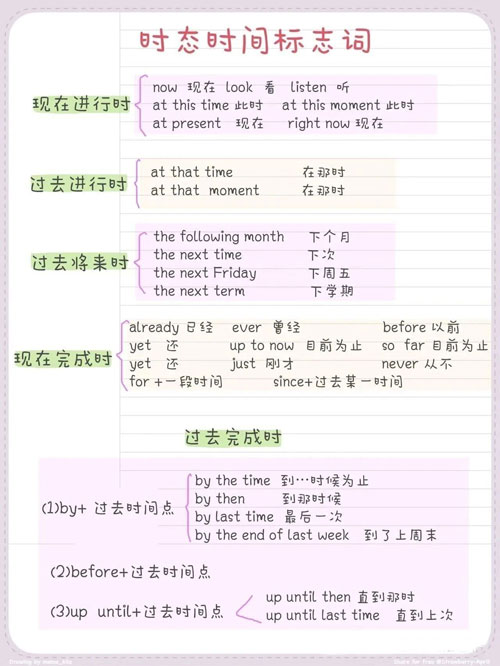 时态时间标志词
现在进行时
now 现在 look 看 listen 听
at this time 此时 at this moment 此时
at present 现在 right now 现在
过去进行时
at that time 在那时
at that moment 在那时
过去将来时
the following month 下个月
the next time 下次
the next Friday 下周五
the next term 下学期
现在完成时
already 已经 ever 曾经 before 以前
yet 还 up to now 目前为止 so far 目前为止
yet 还 just 刚才 never 从不
for +一段时间 since+过去某一时间
过去完成时
(1)by+ 过去时间点
by the time 到…时候为止
by then 到那时候
by last time 最后一次
by the end of last week 到了上周末
(2)before+过去时间点
(3)up until+过去时间点
up until then 直到那时
up until last time 直到上次